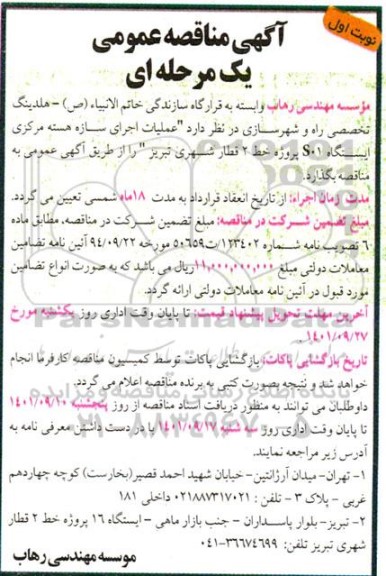 نوبت اول
آگهی مناقصه عمومی
یک مرحله ای
مؤسسه مهندسی رهاب وابسته به قرارگاه سازندگی خاتم الانبیاء (ص) – هلدینگ
تخصصی راه و شهرسازی در نظر دارد "عملیات اجرای سازه هسته مرکزی
ایستگاه S01 پروژه خط ۲ قطار شهری تبریز " را از طریق آگهی عمومی به
مناقصه بگذارد.
مدت زمان اجرا: از تاریخ انعقاد قرارداد به مدت ۱۸ماه شمسی تعیین می گردد.
مبلغ تضمین شرکت در مناقصه: مبلغ تضمین شرکت در مناقصه، مطابق ماده
۶ تصویب نامه شماره ۱۲۳۴۰۲/ت۵۰۶۵۹ مورخه ۹۴/۰۹/۲۲ آئین نامه تضامین
معاملات دولتی مبلغ ۱۱,۰۰۰,۰۰۰,۰۰۰ریال می باشد که به صورت انواع تضامین
مورد قبول در آئین نامه معاملات دولتی ارائه گردد.
آخرین مهلت تحویل پیشنهاد قیمت: تا پایان وقت اداری روز یکشنبه مورخ
۱۴۰۱/۰۹/۲۷.
تاریخ بازگشایی پاکات: بازگشایی پاکات توسط کمیسیون مناقصه کارفرما انجام
خواهد شد و نتیجه بصورت کتبی به برنده مناقصه اعلام می گردد.
داوطلبان می توانند به منظور دریافت اسناد مناقصه از روز پنجشنبه ۱۴۰۱/۰۹/۱۰
تا پایان وقت اداری روز ۱۴۰۱/۰۹/۱۷ با در دست داشتن معرفی نامه به
آدرس زیر مراجعه نمایند.
۱- تهران- میدان آرژانتین- خیابان شهید احمد قصیر(بخارست) کوچه چهاردهم
غربی - پلاک ۳ - تلفن : ۰۲۱۸۸۷۳۱۷۰۲۱ داخلی ۱۸۱
۲- تبریز- بلوار پاسداران - جنب بازار ماهی - ایستگاه ۱۶ پروژه خط ۲ قطار
شهری تبریز تلفن: ۳۶۶۷۴۶۹۹-۰۴۱
موسسه مهندسی رهاب